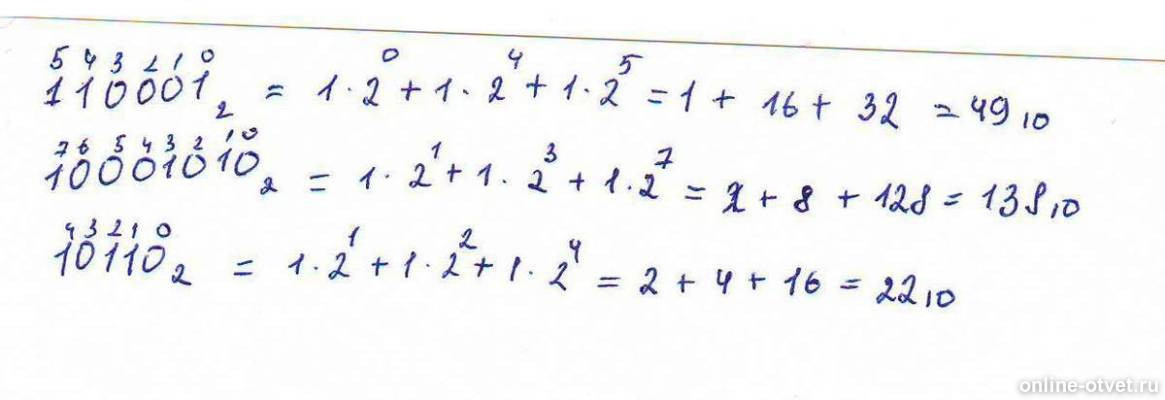 5 4 3 2 1 0
110001₂ = 1·2⁰ + 1·2⁴ + 1·2⁵ = 1 + 16 + 32 = 49₁₀
7 6 5 4 3 2 1 0
10001010₂ = 1·2¹ + 1·2³ + 1·2⁷ = 2 + 8 + 128 = 138₁₀
4 3 2 1 0
10110₂ = 1·2¹ + 1·2² + 1·2⁴ = 2 + 4 + 16 = 22₁₀
online-otvet.ru